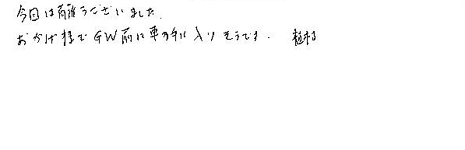 今回は有難うございました.
おかげ様でGW前に車が手に入りそうです。